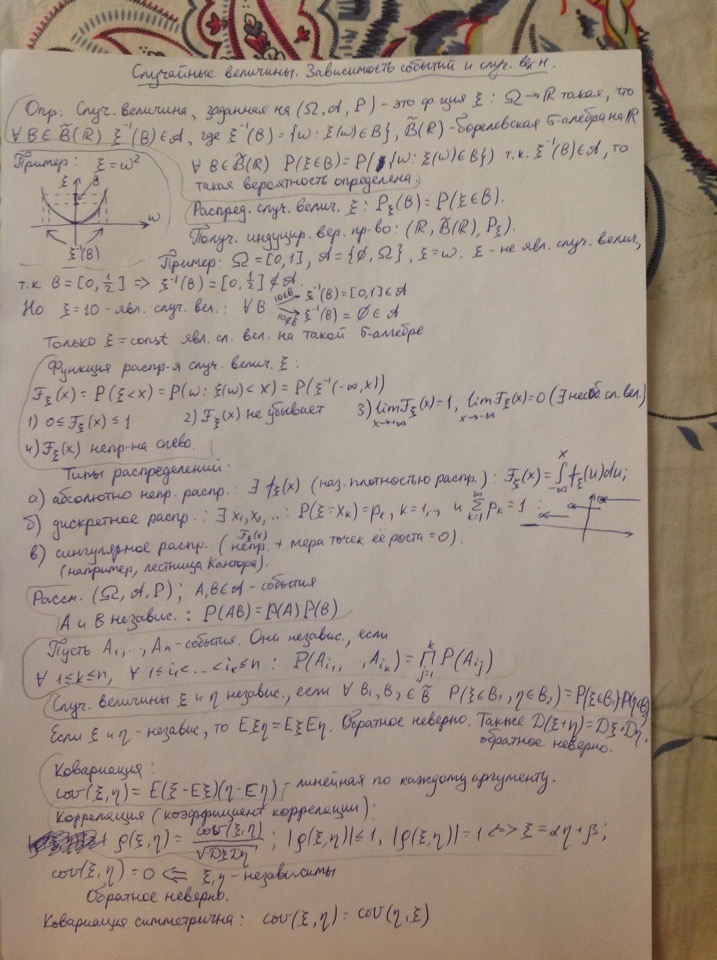 Случайные величины. Зависимость событий и случ. велич.
Опр: Случ. величина, заданная на (Ω, A, P) - это ф-ция ξ: Ω→ℝ такая, что
∀ B ∈ B̃(ℝ) ξ⁻¹(B) ∈ A, где ξ⁻¹(B) = {ω: ξ(ω) ∈ B}, B̃(ℝ) - борелевская σ-алгебра на ℝ
Пример: ξ = ω²
ξ
B
ω
ξ⁻¹(B)
∀ B ∈ B̃(ℝ) P(ξ∈B) = P({ω: ξ(ω) ∈ B}) т.к. ξ⁻¹(B) ∈ A, то
такая вероятность определена.
Распред. случ. велич. ξ: P_ξ(B) = P(ξ∈B).
Получ. индуцир. вер. пр-во: (ℝ, B̃(ℝ), P_ξ).
Пример: Ω = [0,1], A = {∅, Ω}, ξ = ω. ξ - не явл. случ. велич,
т.к. B = [0, 1/2] => ξ⁻¹(B) = [0, 1/2] ∉ A.
Но ξ = 10 - явл. случ вел.: ∀ B 10∈B → ξ⁻¹(B) = [0,1] ∈ A
10∉B → ξ⁻¹(B) = ∅ ∈ A
Только ξ = const явл. сл. вел. на такой σ-алгебре
Функция распр-я случ. велич. ξ:
F_ξ(x) = P(ξ<x) = P(ω: ξ(ω) < x) = P(ξ⁻¹(-∞, x))
1) 0 ≤ F_ξ(x) ≤ 1 2) F_ξ(x) не убывает 3) lim_{x→+∞} F_ξ(x) = 1, lim_{x→-∞} F_ξ(x) = 0 (∃ несоб. сл. вел.)
4) F_ξ(x) непр-на слева.
Типы распределений:
а) абсолютно непр. распр.: ∃ f_ξ(x) (наз. плотностью распр.): F_ξ(x) = ∫_{-∞}^{x} f_ξ(u)du;
б) дискретное распр.: ∃ x₁, x₂, ..: P(ξ=x_k) = p_k, k = 1, .., и ∑_{k=1}^{∞} p_k = 1 :
в) сингулярное распр. (F_ξ(x) непр. + мера точек её роста = 0).
(например, лестница Кантора).
Рассм. (Ω, A, P); A, B ∈ A - события
A и B независ.: P(AB) = P(A)P(B)
Пусть A₁, .., Aₙ - события. Они независ., если
∀ 1≤k≤n, ∀ 1≤i₁<...<i_k≤n : P(A_{i₁}, .., A_{i_k}) = ∏_{j=1}^{k} P(A_{i_j})
Случ. величины ξ и η независ., если ∀ B₁, B₂ ∈ B̃ P(ξ∈B₁, η∈B₂) = P(ξ∈B₁)P(η∈B₂)
Если ξ и η - независ, то Eξη = EξEη. Обратное неверно. Также D(ξ+η) = Dξ+Dη,
обратное неверно.
Ковариация:
cov(ξ,η) = E(ξ-Eξ)(η-Eη) - линейная по каждому аргументу.
Корреляция (коэффициент корреляции):
ρ(ξ,η) = cov(ξ,η)/√(DξDη) ; |ρ(ξ,η)| ≤ 1, |ρ(ξ,η)| = 1 <=> ξ = αη + β;
cov(ξ,η) = 0 ⇐ ξ, η - независимы
Обратное неверно.
Ковариация симметрична: cov(ξ,η) = cov(η,ξ)